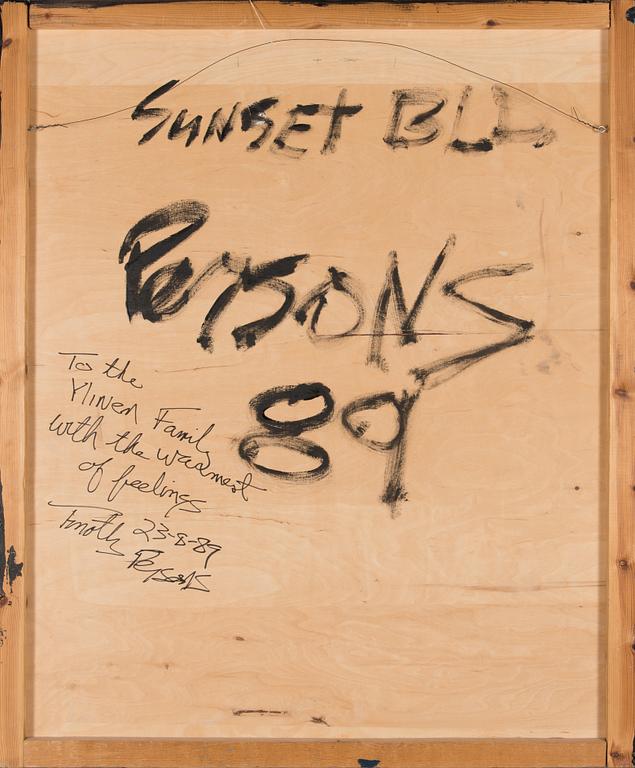 SUNSET BLD.
PERSONS
89
To the
Ylinen Family
with the warmest
of feelings
Timothy 23-8-89
Persons